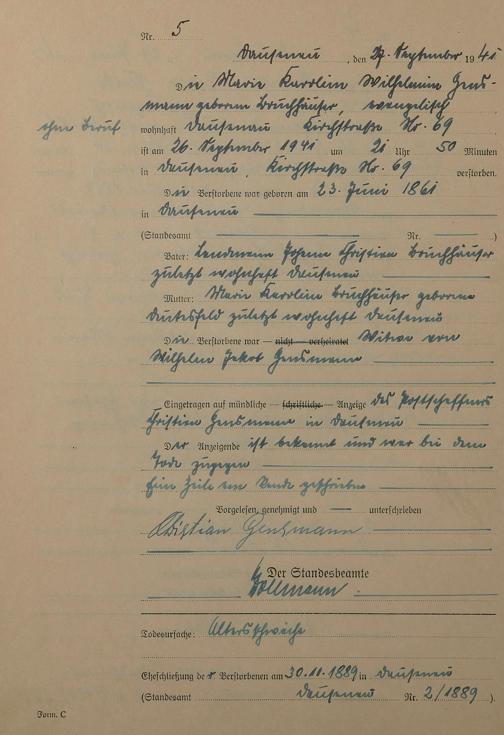 Nr. 5
Dausenau, den 27. September 1941
Die Marie Karoline Wilhelmine Gens-
mann geborene Bruchhäuser, evangelisch
ohne Beruf
wohnhaft Dausenau Kirchstraße Nr. 69
ist am 26. September 1941 um 21 Uhr 50 Minuten
in Dausenau, Kirchstraße Nr. 69 verstorben.
Die Verstorbene war geboren am 23. Juni 1861
in Dausenau
(Standesamt Nr. )
Vater: Landmann Johann Christian Bruchhäuser
zuletzt wohnhaft Dausenau
Mutter: Marie Karoline Bruchhäuser geborene
zuletzt wohnhaft Dausenau
Die Verstorbene war — nicht — verheiratet Witwe von
Wilhelm Jakob Gensmann
Eingetragen auf mündliche — schriftliche — Anzeige des Postschaffners
Christian Gensmann in Dausenau
Der Anzeigende ist bekannt und war bei dem
Tode zugegen
Eine Zeile am Rande geschrieben
Vorgelesen, genehmigt und — unterschrieben
Christian Gensmann
Der Standesbeamte
Todesursache: Altersschwäche
Eheschließung der Verstorbenen am 30.11.1889 in Dausenau
(Standesamt Dausenau Nr. 2/1889 ).
Form. C